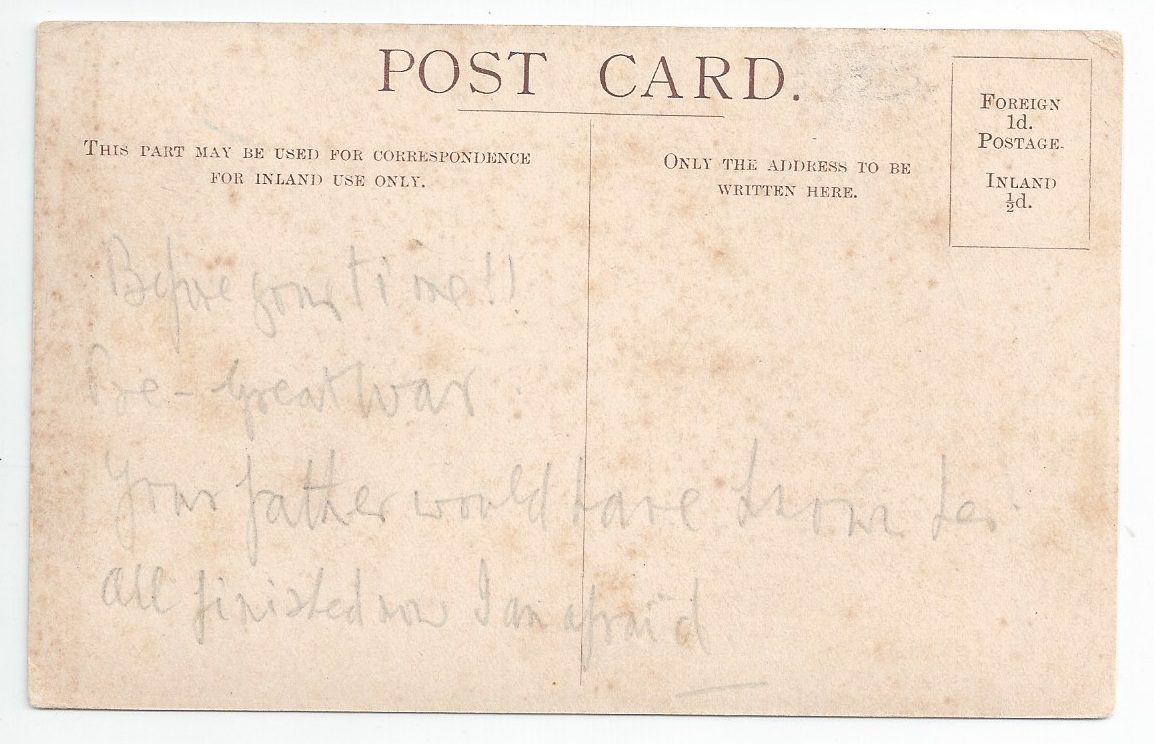 POST CARD.
THIS PART MAY BE USED FOR CORRESPONDENCE
FOR INLAND USE ONLY.
ONLY THE ADDRESS TO BE
WRITTEN HERE.
FOREIGN
1d.
POSTAGE.
INLAND
½d.
Before my time!!
Pre-Great War
Your father would have known her.
All finished now I am afraid